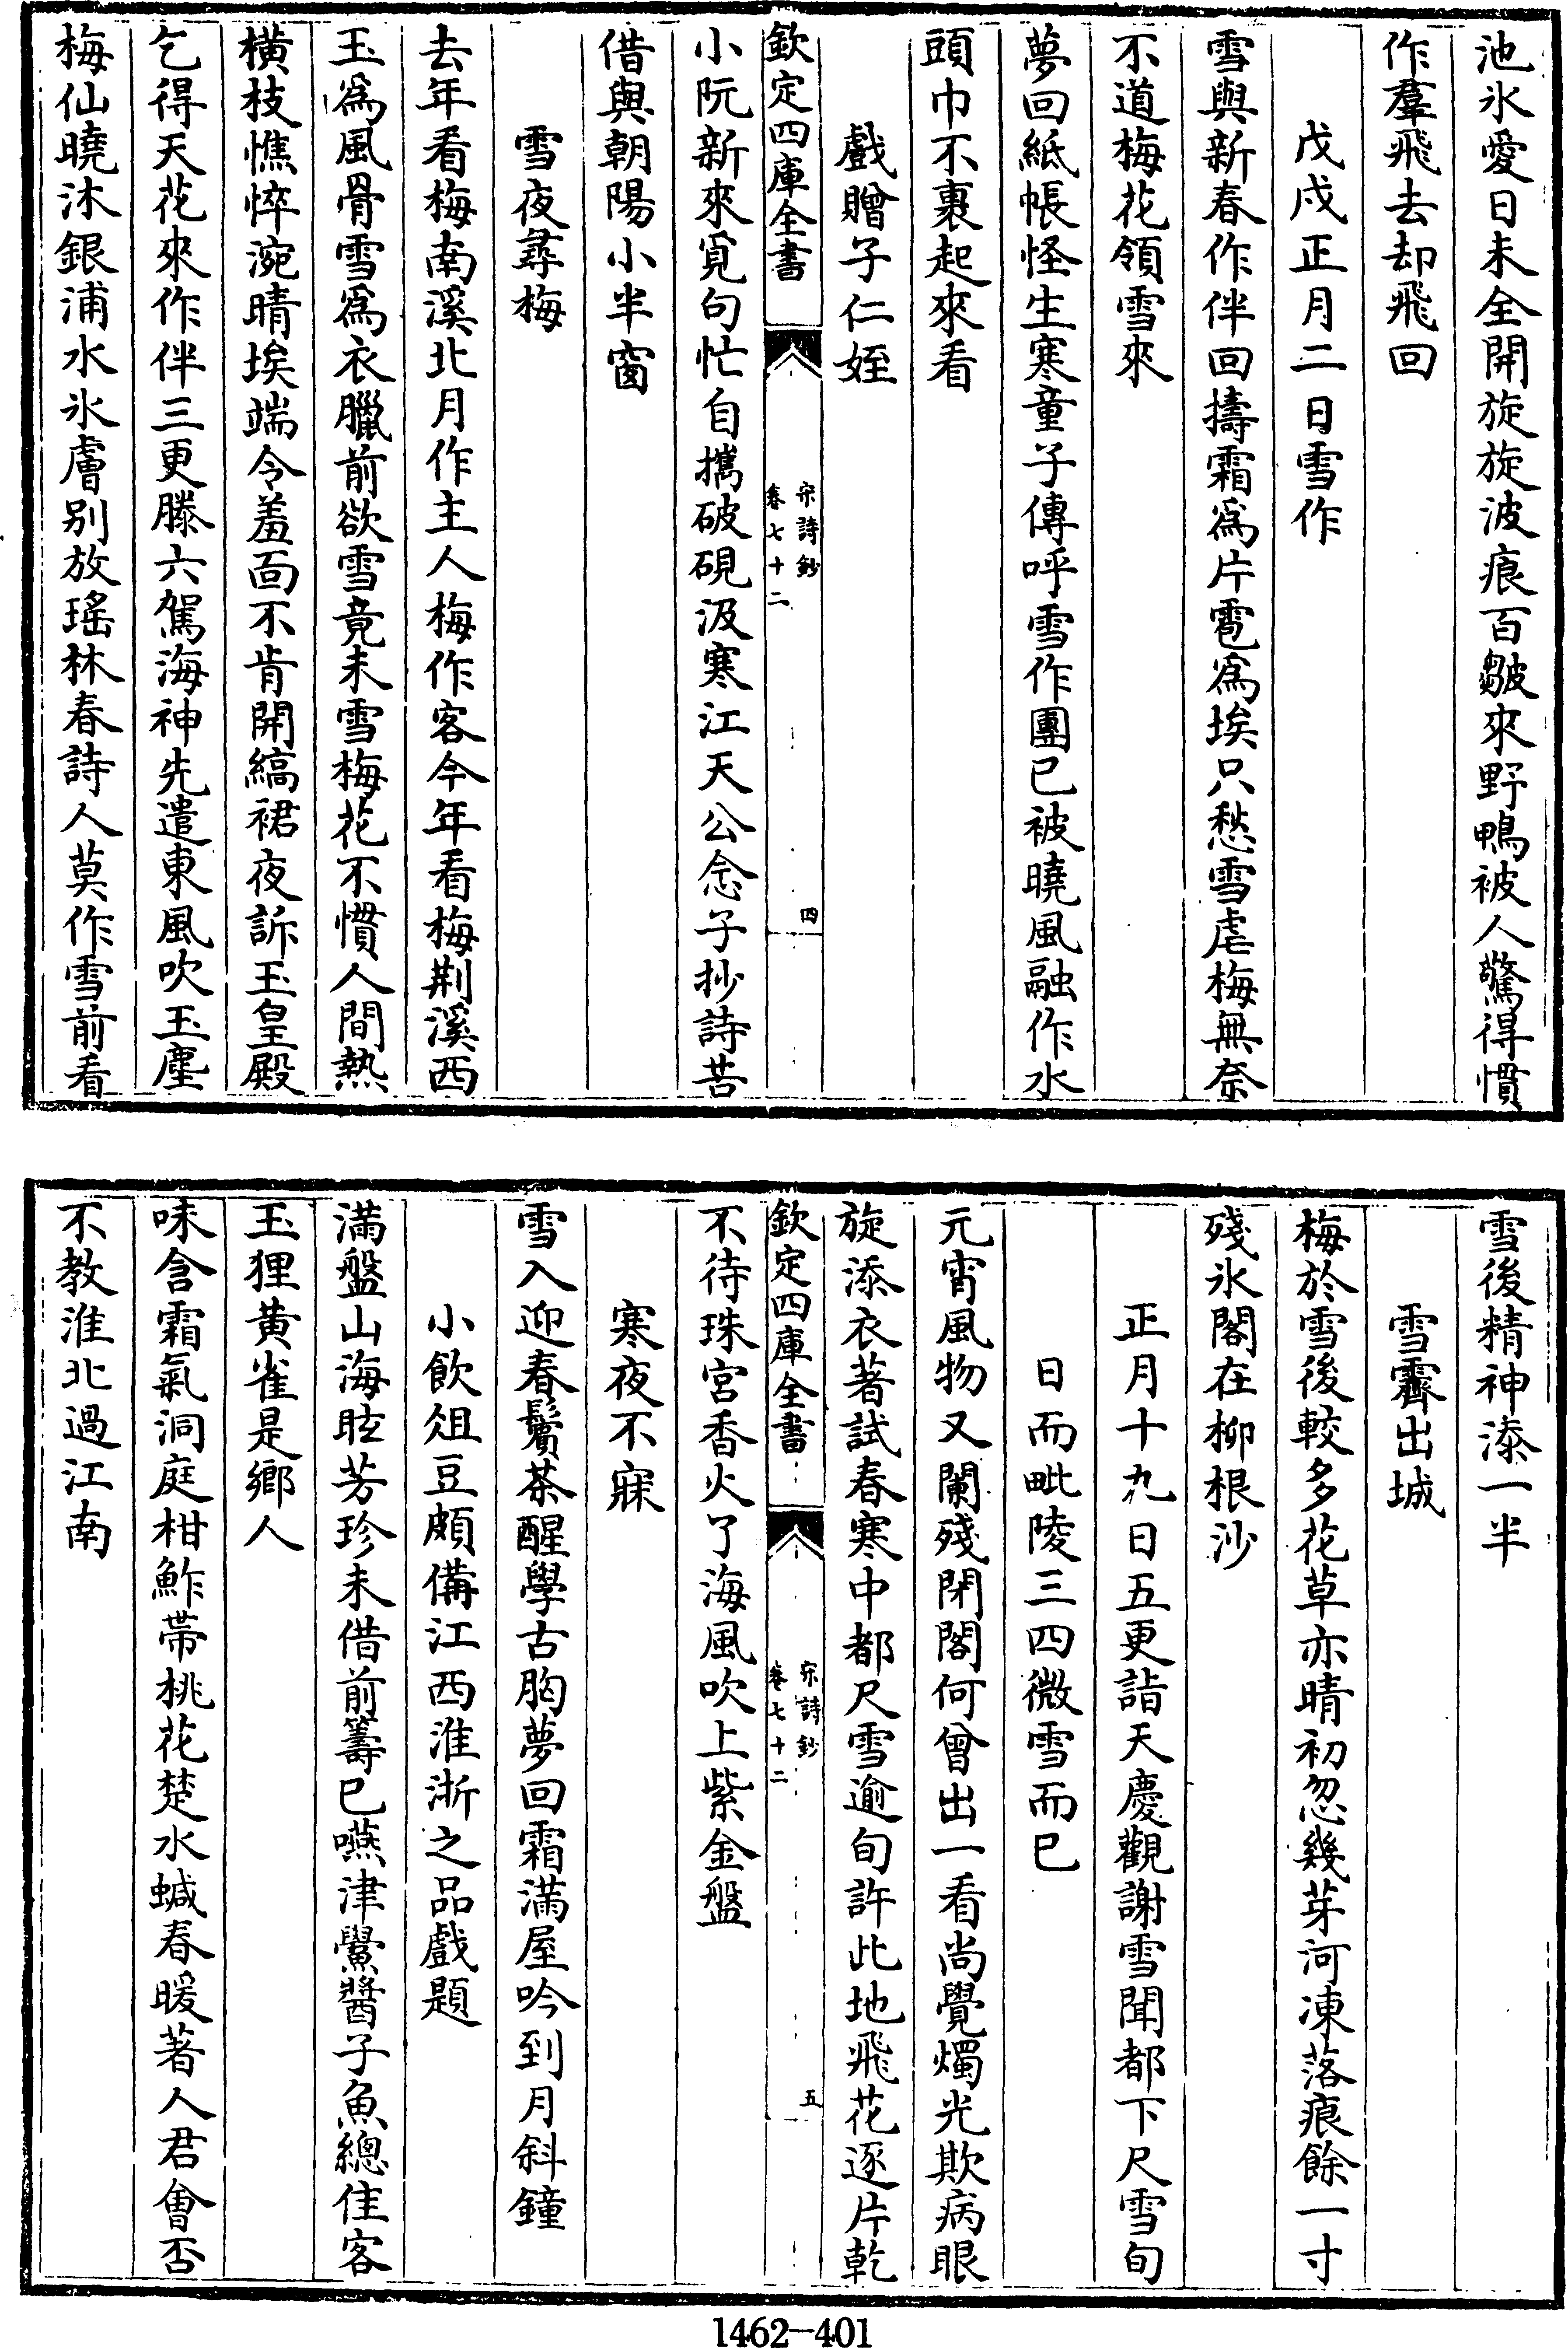 池氷愛日未全開旋旋波痕百皺來野鴨被人驚得慣
作羣飛去却飛回
戊戍正月二日雪作
雪與新春作伴回擣霜為片雹為埃只愁雪虐梅無奈
不道梅花領雪來
夢回紙帳怪生寒童子傳呼雪作團已被曉風融作水
頭巾不裹起來看
戲贈子仁姪
欽定四庫全書
宋詩鈔
卷七十二
四
小阮新來覓句忙自攜破硯汲寒江天公念子抄詩苦
借與朝陽小半窗
雪夜尋梅
去年看梅南溪北月作主人梅作客今年看梅荆溪西
玉為風骨雪為衣臘前欲雪竟未雪梅花不慣人間熱
橫枝憔悴涴晴埃端令羞面不肯開縞裙夜訴玉皇殿
乞得天花來作伴三更滕六駕海神先遣東風吹玉塵
梅仙曉沐銀浦水氷膚别放瑤林春詩人莫作雪前看
雪後精神添一半
雪霽出城
梅於雪後較多花草亦晴初忽幾芽河凍落痕餘一寸
殘氷閣在柳根沙
正月十九日五更詣天慶觀謝雪聞都下尺雪旬
日而毗陵三四微雪而已
元宵風物又闌殘閉閤何曾出一看尚覺燭光欺病眼
旋添衣著試春寒中都尺雪逾旬許此地飛花逐片乾
欽定四庫全書
宋詩鈔
卷七十二
五
不待珠宮香火了海風吹上紫金盤
寒夜不寐
雪入迎春鬢茶醒學古胸夢回霜滿屋吟到月斜鐘
小飲俎豆頗備江西淮浙之品戲題
滿盤山海眩芳珍未借前籌已嚥津鱟醬子魚總佳客
玉狸黄雀是鄉人
味含霜氣洞庭柑鮓帶桃花楚水蝛春暖著人君會否
不教淮北過江南
1462-401